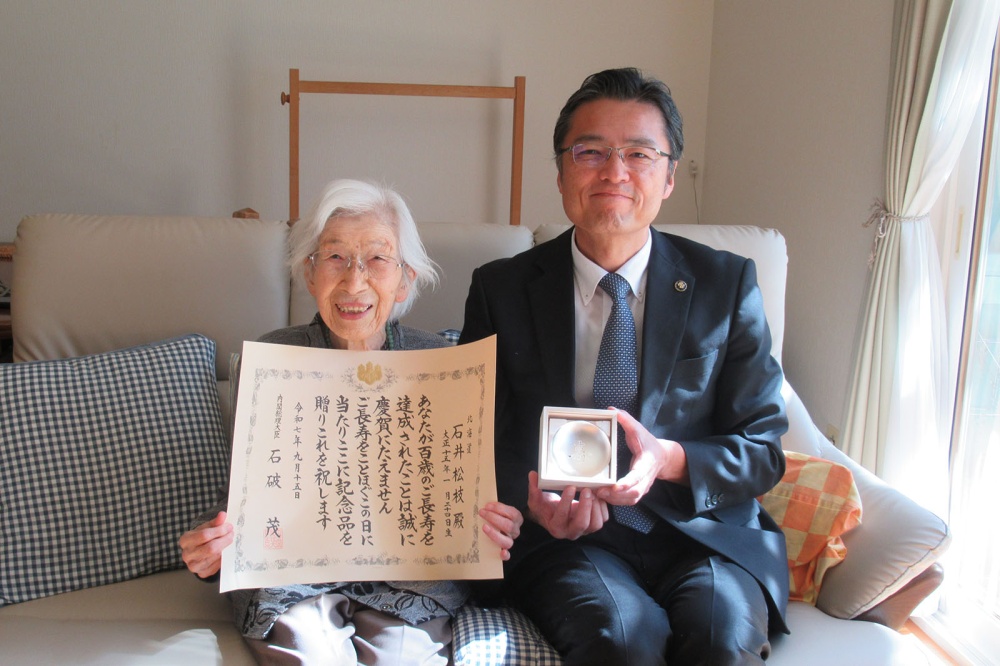 北海道
石井松枝殿
大正十五年一月二十四日生
あなたが百歳のご長寿を
達成されたことは誠に
慶賀にたえません
ご長寿をことほぐこの日に
当たりここに記念品を
贈りこれを祝します
令和七年九月十五日
内閣総理大臣 石破茂